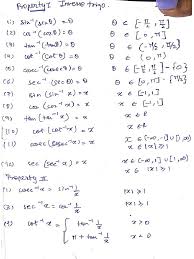 Property I Inverse trigo.
(1) sin⁻¹(sinθ) = θ θ ∈ [-π/2, π/2]
(2) cos⁻¹(cosθ) = θ θ ∈ [0, π]
(3) tan⁻¹(tanθ) = θ θ ∈ (-π/2, π/2)
(4) cot⁻¹(cotθ) = θ θ ∈ (0, π)
(5) cosec⁻¹(cosecθ) = θ θ ∈ [-π/2, π/2] - {0}
(6) sec⁻¹(secθ) = θ θ ∈ [0, π] - {π/2}
x ∈ [-1, 1]
x ∈ [-1, 1]
x ∈ R
(10) cot (cot⁻¹x) = x x ∈ R
(11) cosec (cosec⁻¹x) = x x ∈ (-∞, -1] ∪ [1, ∞)
(12) sec (sec⁻¹x) = x x ∈ (-∞, -1] ∪ [1, ∞)
Property II
(1) cosec⁻¹x = sin⁻¹ 1/x |x| ≥ 1
(2) sec⁻¹x = cos⁻¹ 1/x |x| ≥ 1
(3) cot⁻¹x = { tan⁻¹ 1/x x > 0
π + tan⁻¹ 1/x x < 0